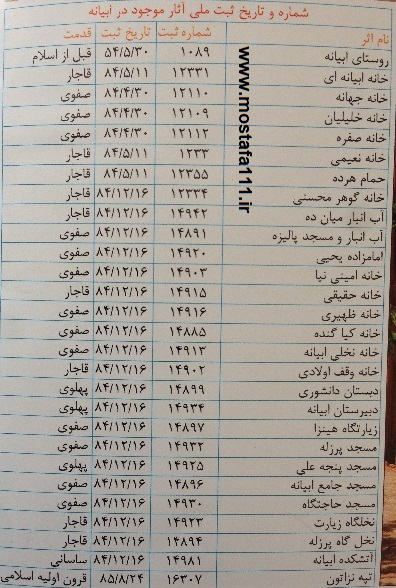 شماره و تاریخ ثبت ملی آثار موجود در ابیانه
نام اثر شماره ثبت تاریخ ثبت قدمت
روستای ابیانه ۱۰۸۹ ۵۴/۵/۳۰ قبل از اسلام
خانه ابیانه ای ۱۲۳۳۱ ۸۴/۵/۱۱ قاجار
خانه جهانه ۱۲۱۱۰ ۸۴/۴/۳۰ صفوی
خانه خلیلیان ۱۲۱۰۹ ۸۴/۴/۳۰ صفوی
خانه صفره ۱۲۱۱۲ ۸۴/۴/۳۰ صفوی
خانه نعیمی ۱۲۳۳ ۸۴/۵/۱۱ قاجار
حمام هرده ۱۲۳۵۵ ۸۴/۵/۱۱ قاجار
خانه گوهر محسنی ۱۲۳۳۴ ۸۴/۱۲/۱۶ قاجار
آب انبار میان ده ۱۴۹۴۲ ۸۴/۱۲/۱۶ قاجار
آب انبار و مسجد پالیزه ۱۴۸۹۱ ۸۴/۱۲/۱۶ صفوی
امامزاده یحیی ۱۴۹۲۰ ۸۴/۱۲/۱۶ صفوی
خانه امینی نیا ۱۴۹۰۳ ۸۴/۱۲/۱۶ صفوی
خانه حقیقی ۱۴۹۱۵ ۸۴/۱۲/۱۶ قاجار
خانه ظهیری ۱۴۹۱۶ ۸۴/۱۲/۱۶ صفوی
خانه کیا گنده ۱۴۸۸۵ ۸۴/۱۲/۱۶ صفوی
خانه نخلی ابیانه ۱۴۹۱۳ ۸۴/۱۲/۱۶ صفوی
خانه وقف اولادی ۱۴۹۰۲ ۸۴/۱۲/۱۶ قاجار
دبستان دانشوری ۱۴۸۹۹ ۸۴/۱۲/۱۶ پهلوی
دبیرستان ابیانه ۱۴۹۳۴ ۸۴/۱۲/۱۶ پهلوی
زیارتگاه هینزا ۱۴۸۹۷ ۸۴/۱۲/۱۶ صفوی
مسجد پرزله ۱۴۹۳۲ ۸۴/۱۲/۱۶ صفوی
مسجد پنجه علی ۱۴۹۲۵ ۸۴/۱۲/۱۶ پهلوی
مسجد جامع ابیانه ۱۴۸۹۶ ۸۴/۱۲/۱۶ صفوی
مسجد حاجتگاه ۱۴۹۳۰ ۸۴/۱۲/۱۶ صفوی
نخلگاه زیارت ۱۴۹۲۳ ۸۴/۱۲/۱۶ قاجار
نخل گاه پرزله ۱۴۸۹۴ ۸۴/۱۲/۱۶ قاجار
آتشکده ابیانه ۱۴۹۸۱ ۸۴/۱۲/۱۶ ساسانی
تپه نزاتون ۱۶۳۰۷ ۸۵/۸/۲۴ قرون اولیه اسلامی
www.mostafa111.ir